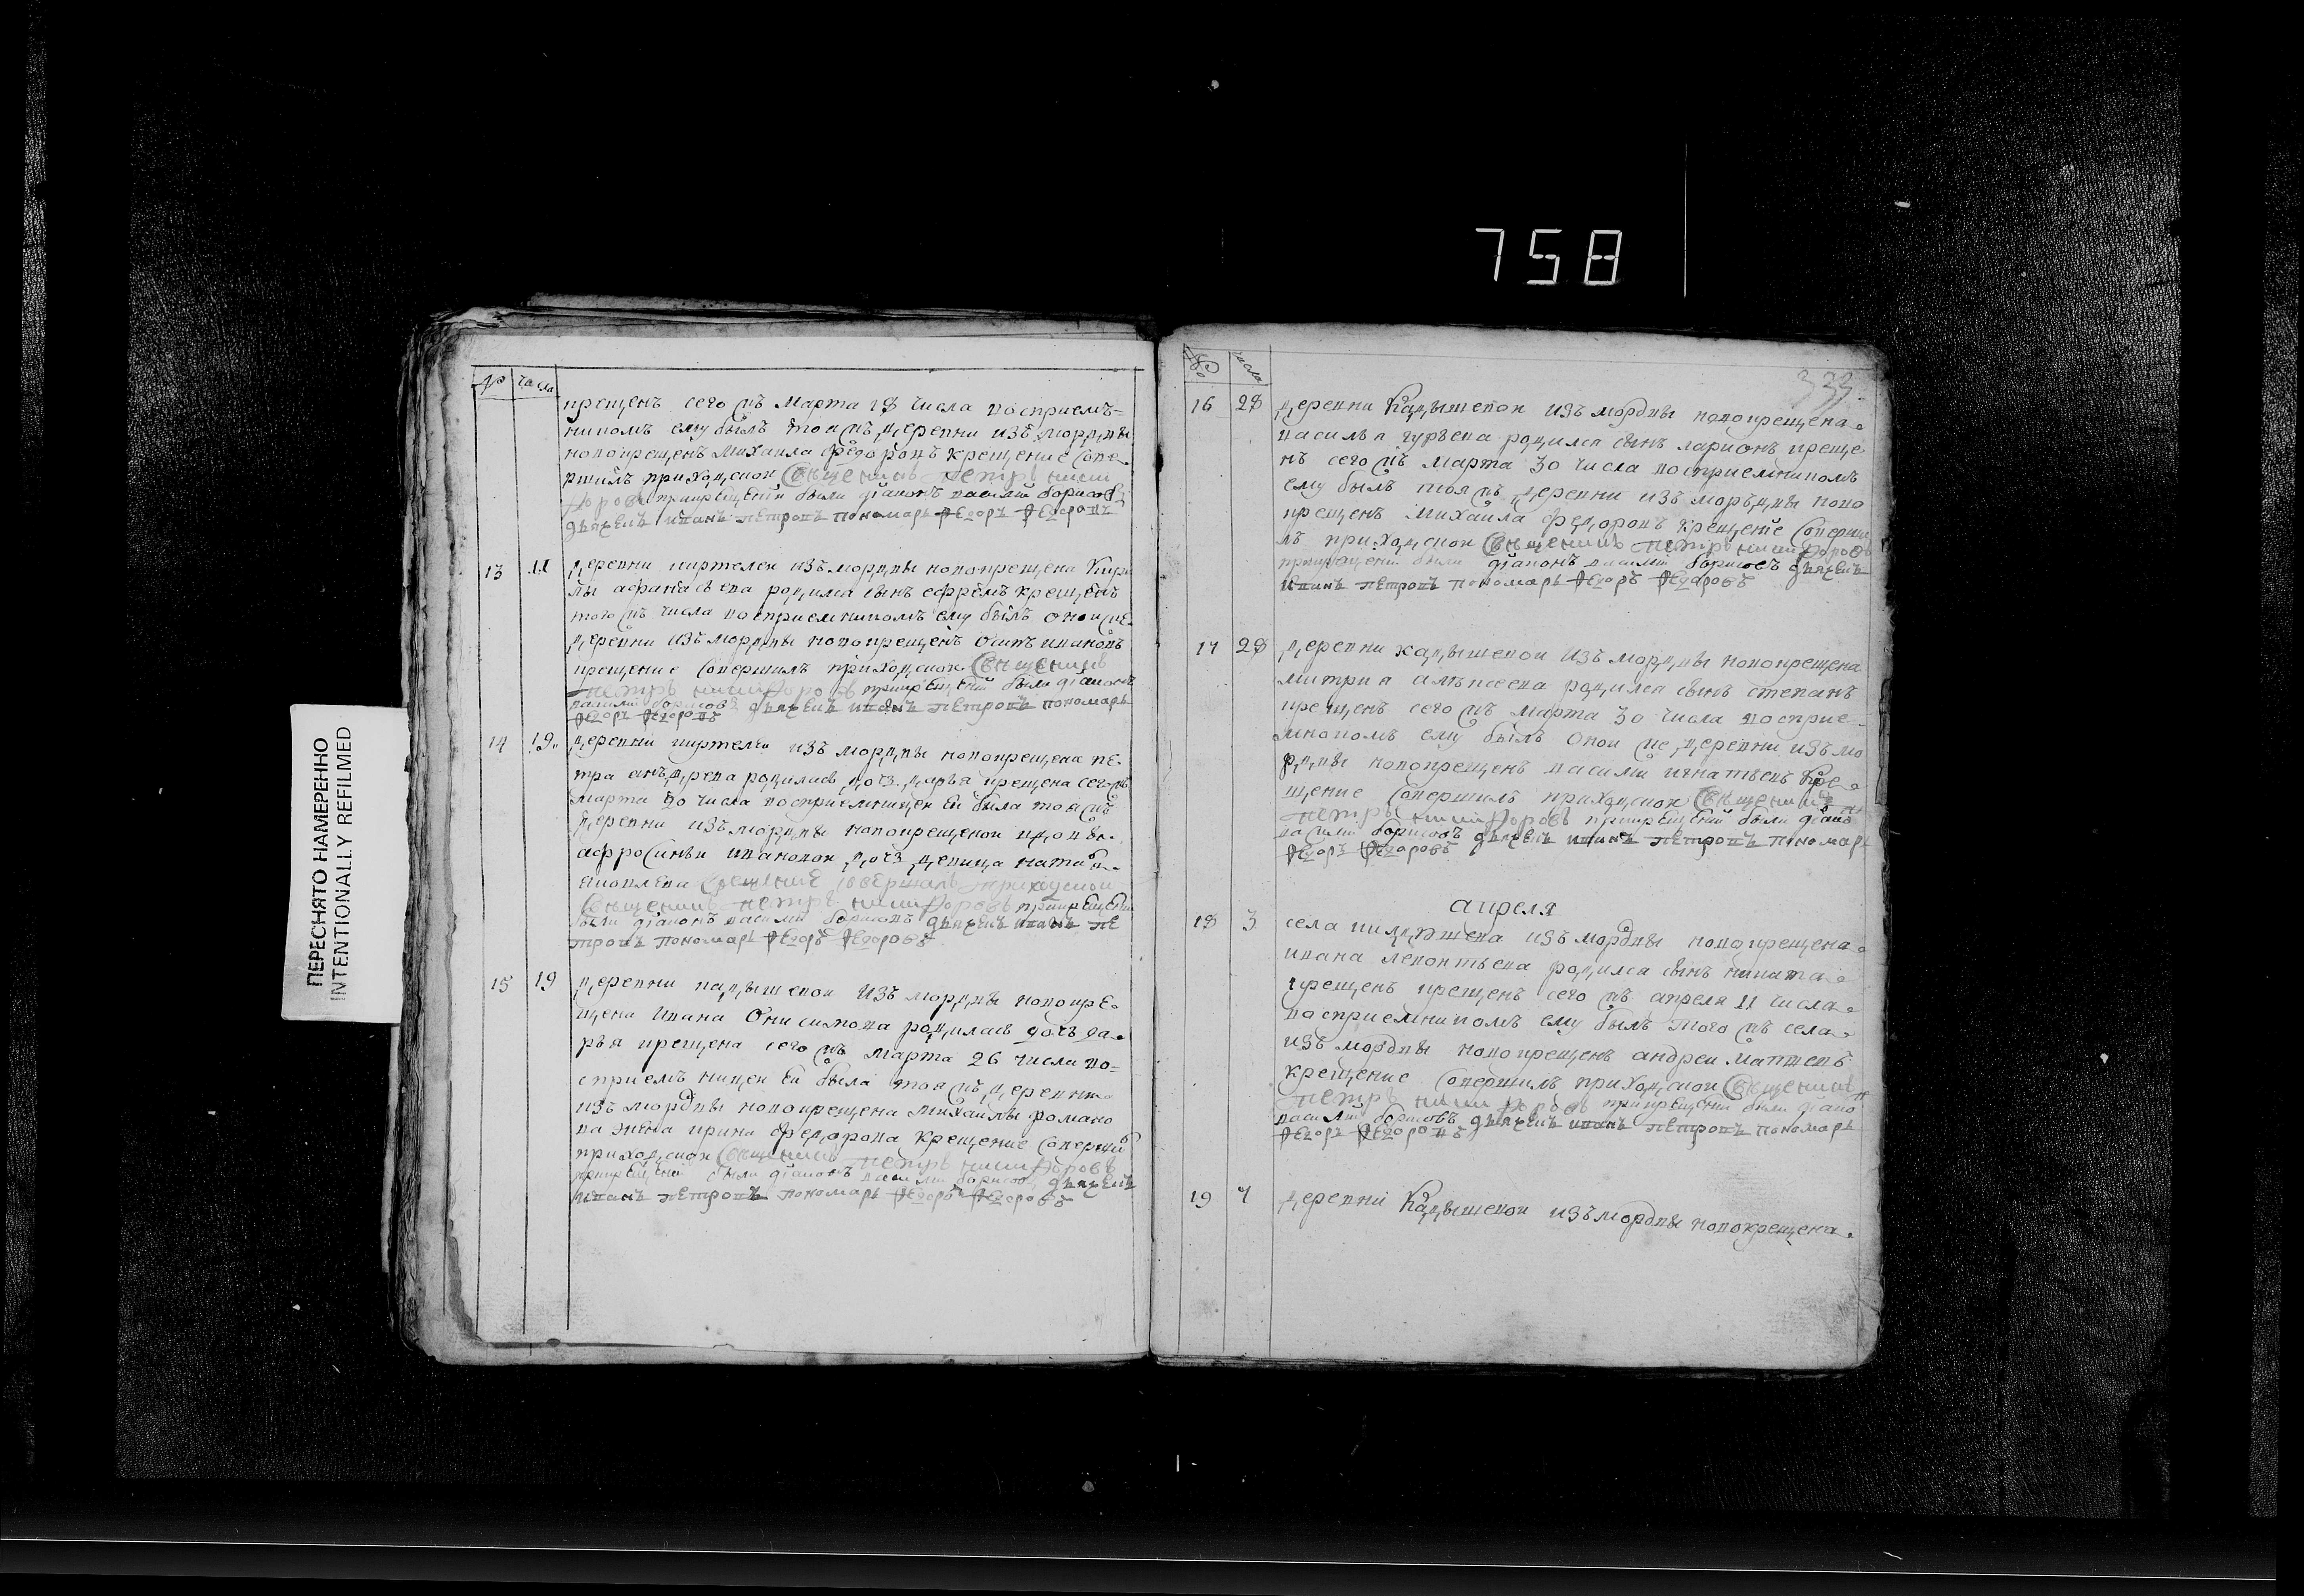 758
ПЕРЕСНЯТО НАМЕРЕННО
INTENTIONALLY REFILMED
№ числа
крещенъ сего мъ марта 18 числа восприемъ=
никомъ ему былъ тоя мъ деревни изъ мордвы
новокрещенъ михаила федоровъ крещение сове
ршилъ приходской священникъ петръ никифоровъ
прикрещении были діаконъ василий борисовъ
дьячекъ иванъ петровъ пономарь федоръ федоровъ
13 11 деревни киртелеи изъ мордвы новокрещена кири
лы афанасьева родился сынъ ефремъ крещенъ
того мъ числа восприемникомъ ему былъ оной же
деревни изъ мордвы новокрещенъ осипъ ивановъ
крещение совершилъ приходской священникъ
петръ никифоровъ прикрещении были діаконъ
василий борисовъ дьячекъ иванъ петровъ пономарь
федоръ федоровъ
14 19 деревни киртелеи изъ мордвы новокрещена пе
тра андрева родилась дочь дарья крещена сего мъ
марта 20 числа восприемницеи ей была тоя мъ
деревни изъ мордвы новокрещеной вдовы
афросиньи ивановой дочь девица
яковлева крещение совершилъ приходской
священникъ петръ никифоровъ прикрещении
были діаконъ василий борисовъ дьячекъ иванъ пе
тровъ пономарь федоръ федоровъ
15 19 деревни кадышевой изъ мордвы новокре
щена ивана онисимова родилась дочь да
рья крещена сего мъ марта 26 числа во=
сприемъницеи ей была тоя мъ деревни
изъ мордвы новокрещена михаилы романо
ва жена ирина федорова крещение совершилъ
приходской священникъ петръ никифоровъ
прикрещении были діаконъ василий борисовъ дьячекъ
иванъ петровъ пономарь федоръ федоровъ
№ число
333
16 28 деревни кадышевой изъ мордвы новокрещена
василья гурьева родился сынъ ларионъ креще
нъ сего мъ марта 30 числа восприемникомъ
ему былъ тоя мъ деревни изъ моръдвы ново
крещенъ михаила федоровъ крещение соверши
лъ приходской священникъ петръ никифоровъ
прикрещении были діаконъ василий борисовъ дьячекъ
иванъ петровъ пономарь федоръ федоровъ
17 28 деревни кадышевой изъ мордвы новокрещена
митрия алексеева родился сынъ степанъ
крещенъ сего мъ марта 30 числа восприе
мникомъ ему былъ оной же деревни изъ мо
рдвы новокрещенъ василий игнатьевъ кре
щение совершилъ приходской священникъ
петръ никифоровъ прикрещении были діаконъ
василий борисовъ дьячекъ иванъ петровъ пономарь
федоръ федоровъ
апреля
18 3 села изъ мордвы новокрещена
ивана леонтьева родился сынъ никита
крещенъ крещенъ сего мъ апреля 11 числа
восприемникомъ ему былъ того мъ села
изъ мордвы новокрещенъ андреи матвеевъ
крещение совершилъ приходской священникъ
петръ никифоровъ прикрещении были діаконъ
василий борисовъ дьячекъ иванъ петровъ пономарь
федоръ федоровъ
19 4 деревни кадышевой изъ мордвы новокрещена